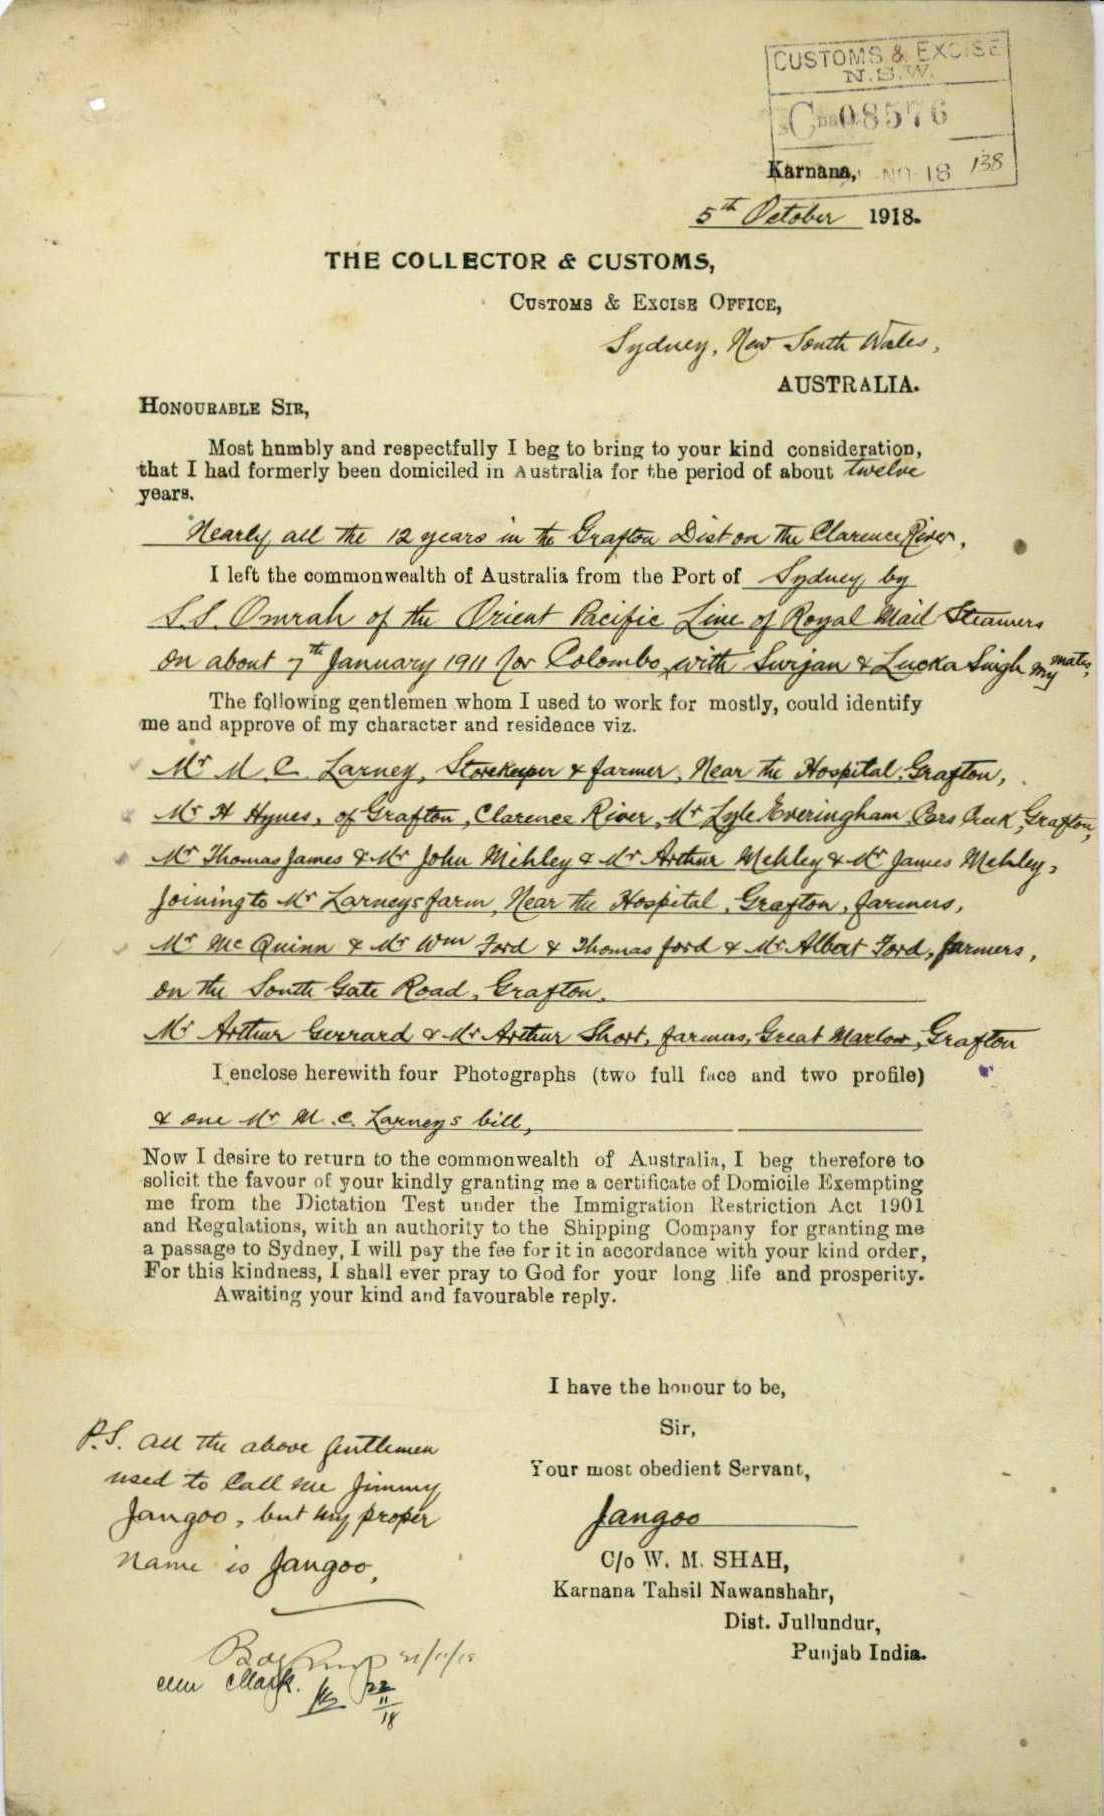 CUSTOMS & EXCISE
N.S.W.
08576
Karnana, NO 18 138
5th October 1918.
THE COLLECTOR & CUSTOMS,
CUSTOMS & EXCISE OFFICE,
Sydney, New South Wales,
AUSTRALIA.
HONOURABLE SIR,
Most hnmbly and respectfully I beg to bring to your kind consideration,
that I had formerly been domiciled in Australia for the period of about twelve
years.
Nearly all the 12 years in the Grafton Dist on the Clarence River.
I left the commonwealth of Australia from the Port of Sydney by
S.S. Omrah of the Orient Pacific Line of Royal Mail Steamers
on about 7th January 1911 for Colombo, with Surjan & Lucka Singh my mates,
The following gentlemen whom I used to work for mostly, could identify
me and approve of my character and residence viz.
Mr M. C. Larney, Storekeeper & farmer, Near the Hospital, Grafton,
Mr H Hynes, of Grafton, Clarence River, Mr Lyle Everingham, Cars Creek, Grafton,
Mr Thomas James & Mr John Mehley & Mr Arthur Mehley & Mr James Mehley,
Joining to Mr Larneys farm, Near the Hospital, Grafton, farmers,
Mr Mc Quinn & Mr Wm Ford & Thomas ford & Mr Albert Ford, farmers,
on the South Gate Road, Grafton.
Mr Arthur Gerrard & Mr Arthur Short, farmers, Great Marlow, Grafton
I enclose herewith four Photographs (two full face and two profile)
& one Mr M. C. Larneys bill,
Now I desire to return to the commonwealth of Australia, I beg therefore to
solicit the favour of your kindly granting me a certificate of Domicile Exempting
me from the Dictation Test under the Immigration Restriction Act 1901
and Regulations, with an authority to the Shipping Company for granting me
a passage to Sydney, I will pay the fee for it in accordance with your kind order,
For this kindness, I shall ever pray to God for your long life and prosperity.
Awaiting your kind and favourable reply.
I have the honour to be,
Sir,
Your most obedient Servant,
Jangoo
C/o W. M. SHAH,
Karnana Tahsil Nawanshahr,
Dist. Jullundur,
Punjab India.
P.S. All the above gentlemen
used to Call me Jimmy
Jangoo, but my proper
name is Jangoo.
21/11/18
22
11
18